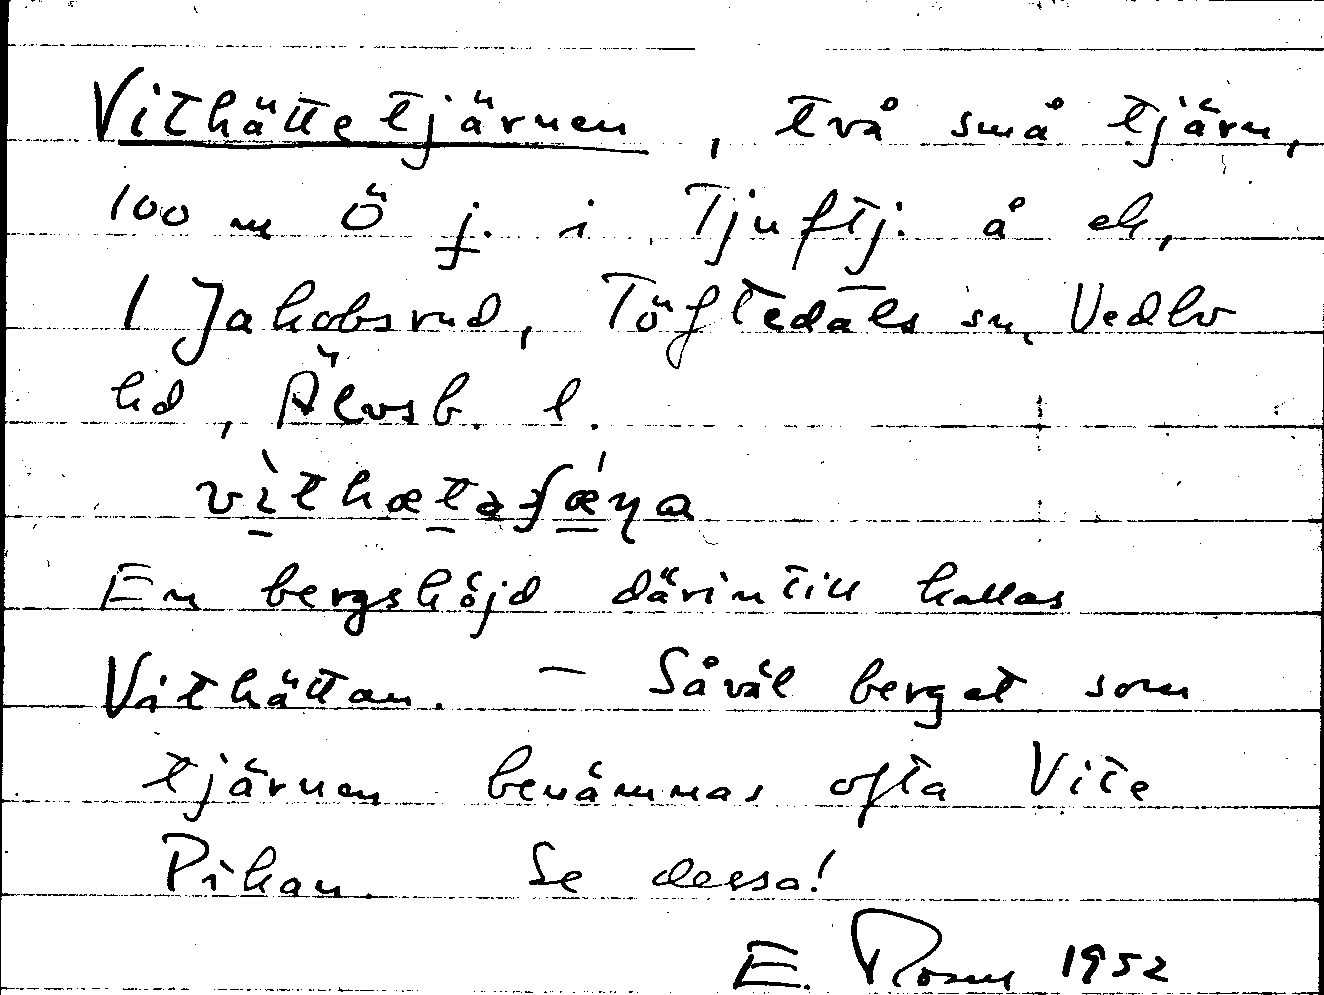 Vithättetjärnen, två små tjärn,
100 m Ö j. i Tjuftj. å ek,
1 Jakobsrud, Töftedals sn, Vedbo
hd, Älvsb. l.
En bergshöjd därintill kallas
Vithättan. – Såväl berget som
tjärnen benämnas ofta Vite
Pikan. Se dessa!
E. Rosm 1952